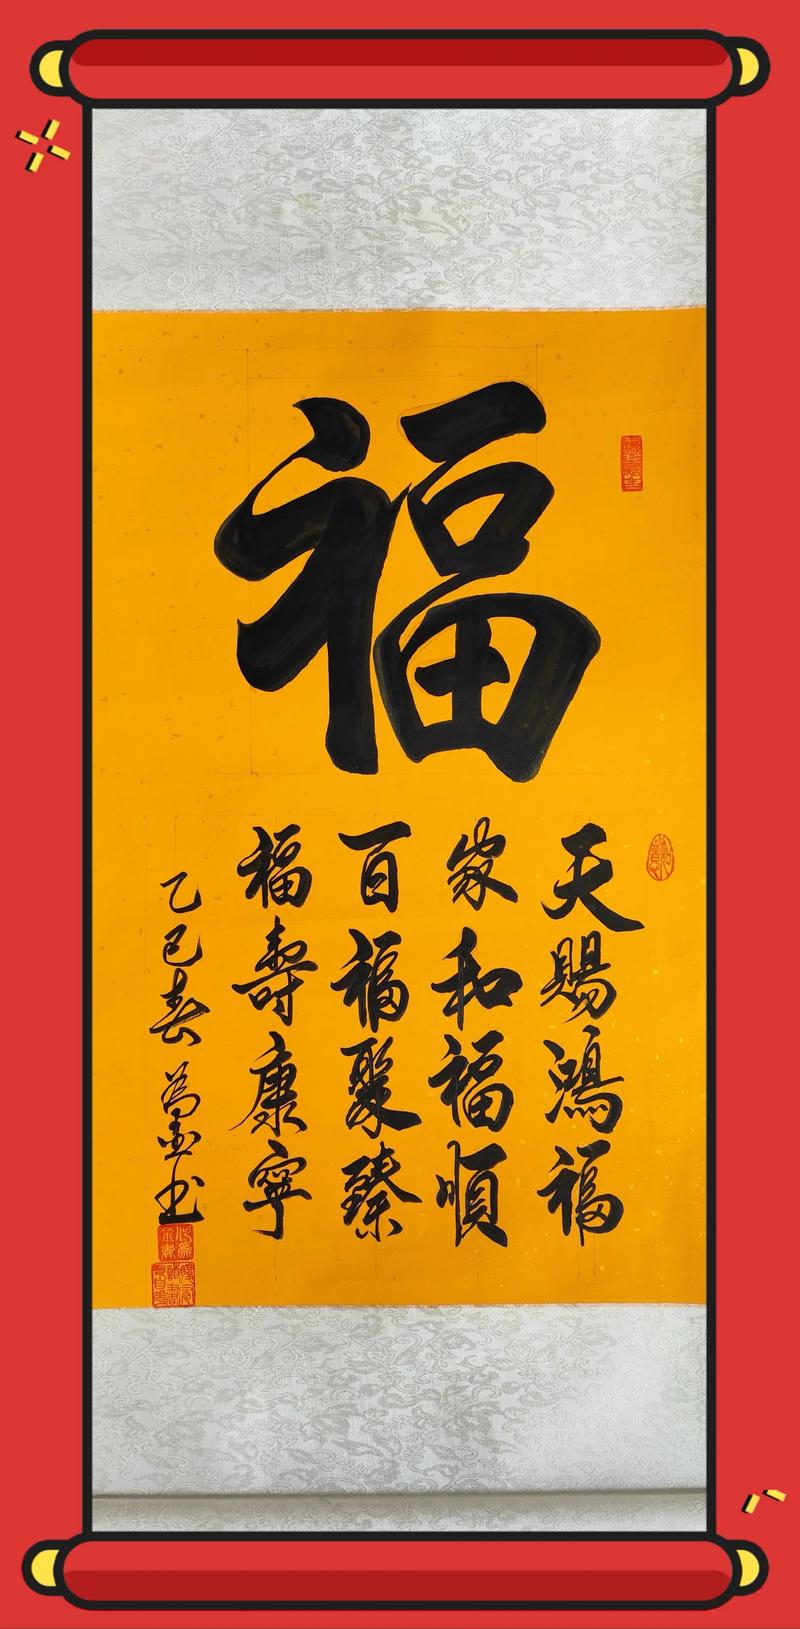 福
天賜鴻福
家和福順
百福聚臻
福壽康寧
乙巳春 為金书
如意